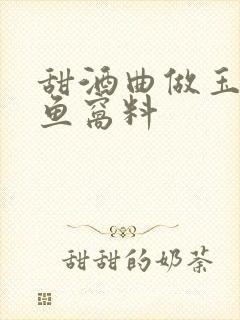 甜酒曲做玉
鱼窝料
甜甜的奶茶